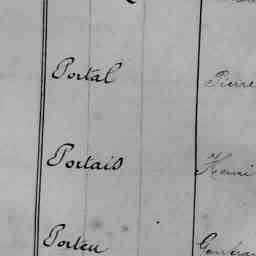 Portal Pierre
Portais Henri
Porteu